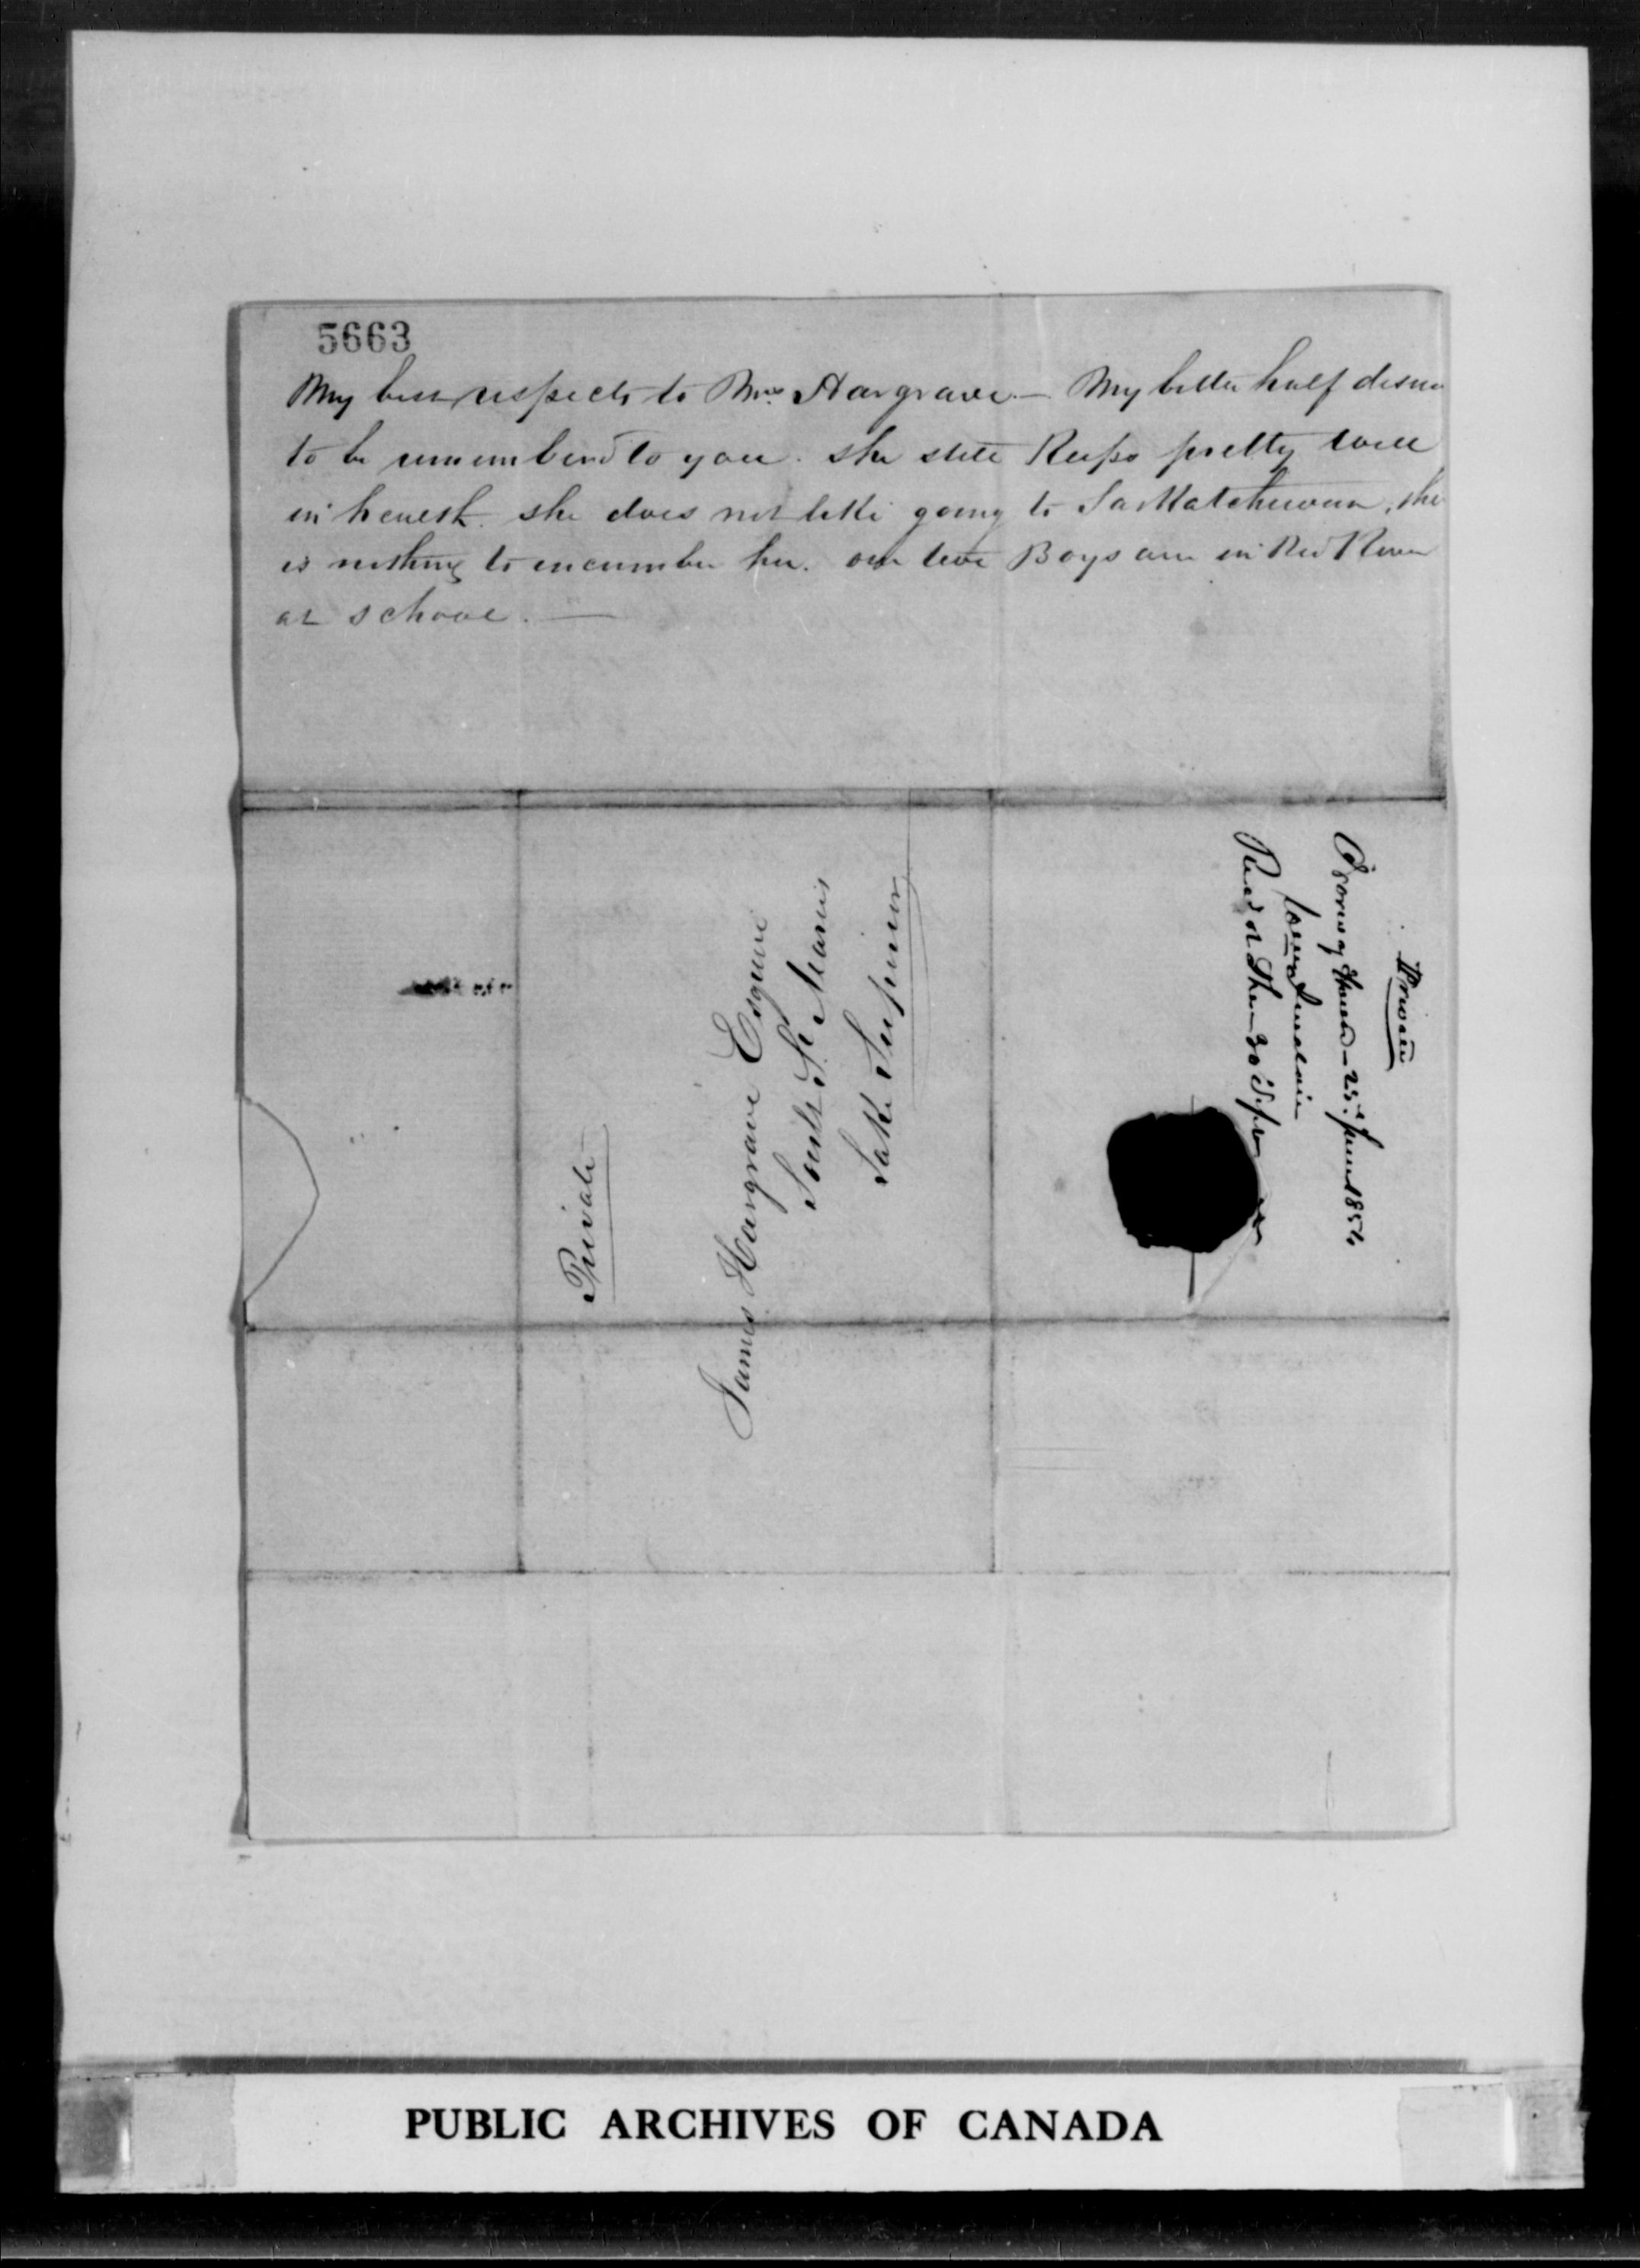 5663
My best respects to Mrs Hargrave — My better half desires
to be rememberd to you. she still Keeps pretty well
in health. she does not like going to Saskatchewan, she
is nothing to incumber her. our two Boys are in Red River
at school. —
Private
James Hargrave Esquire
Sault St. Maries
Lake Superior
Private
Norway House — 25 June 1854
Sinclair
Recd 30
PUBLIC ARCHIVES OF CANADA